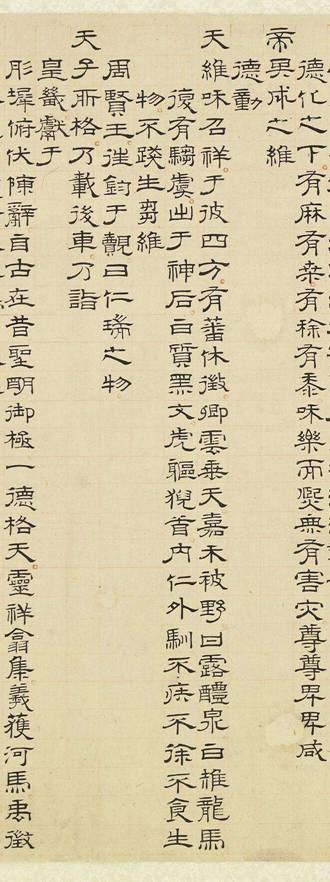 德化之下有麻有桒有稌有黍咊樂而熙無有害灾尊尊卑卑咸
帝畀成之維
德動
天維咊召祥于彼四方有蕃休徵卿雲垂天嘉禾被野甘露醴泉白雉龍馬
復有騶虞出于神后白質黑文虎軀猊首內仁外馴不疾不徐不食生
物不踐生芻維
周賢王徃鈞于觀曰仁瑞之物
天子所格乃載後車乃詣
皇畿獻于
彤墀俯伏陳辭自古在昔聖明御極一德格天靈祥翕集羲獲河馬禹徵